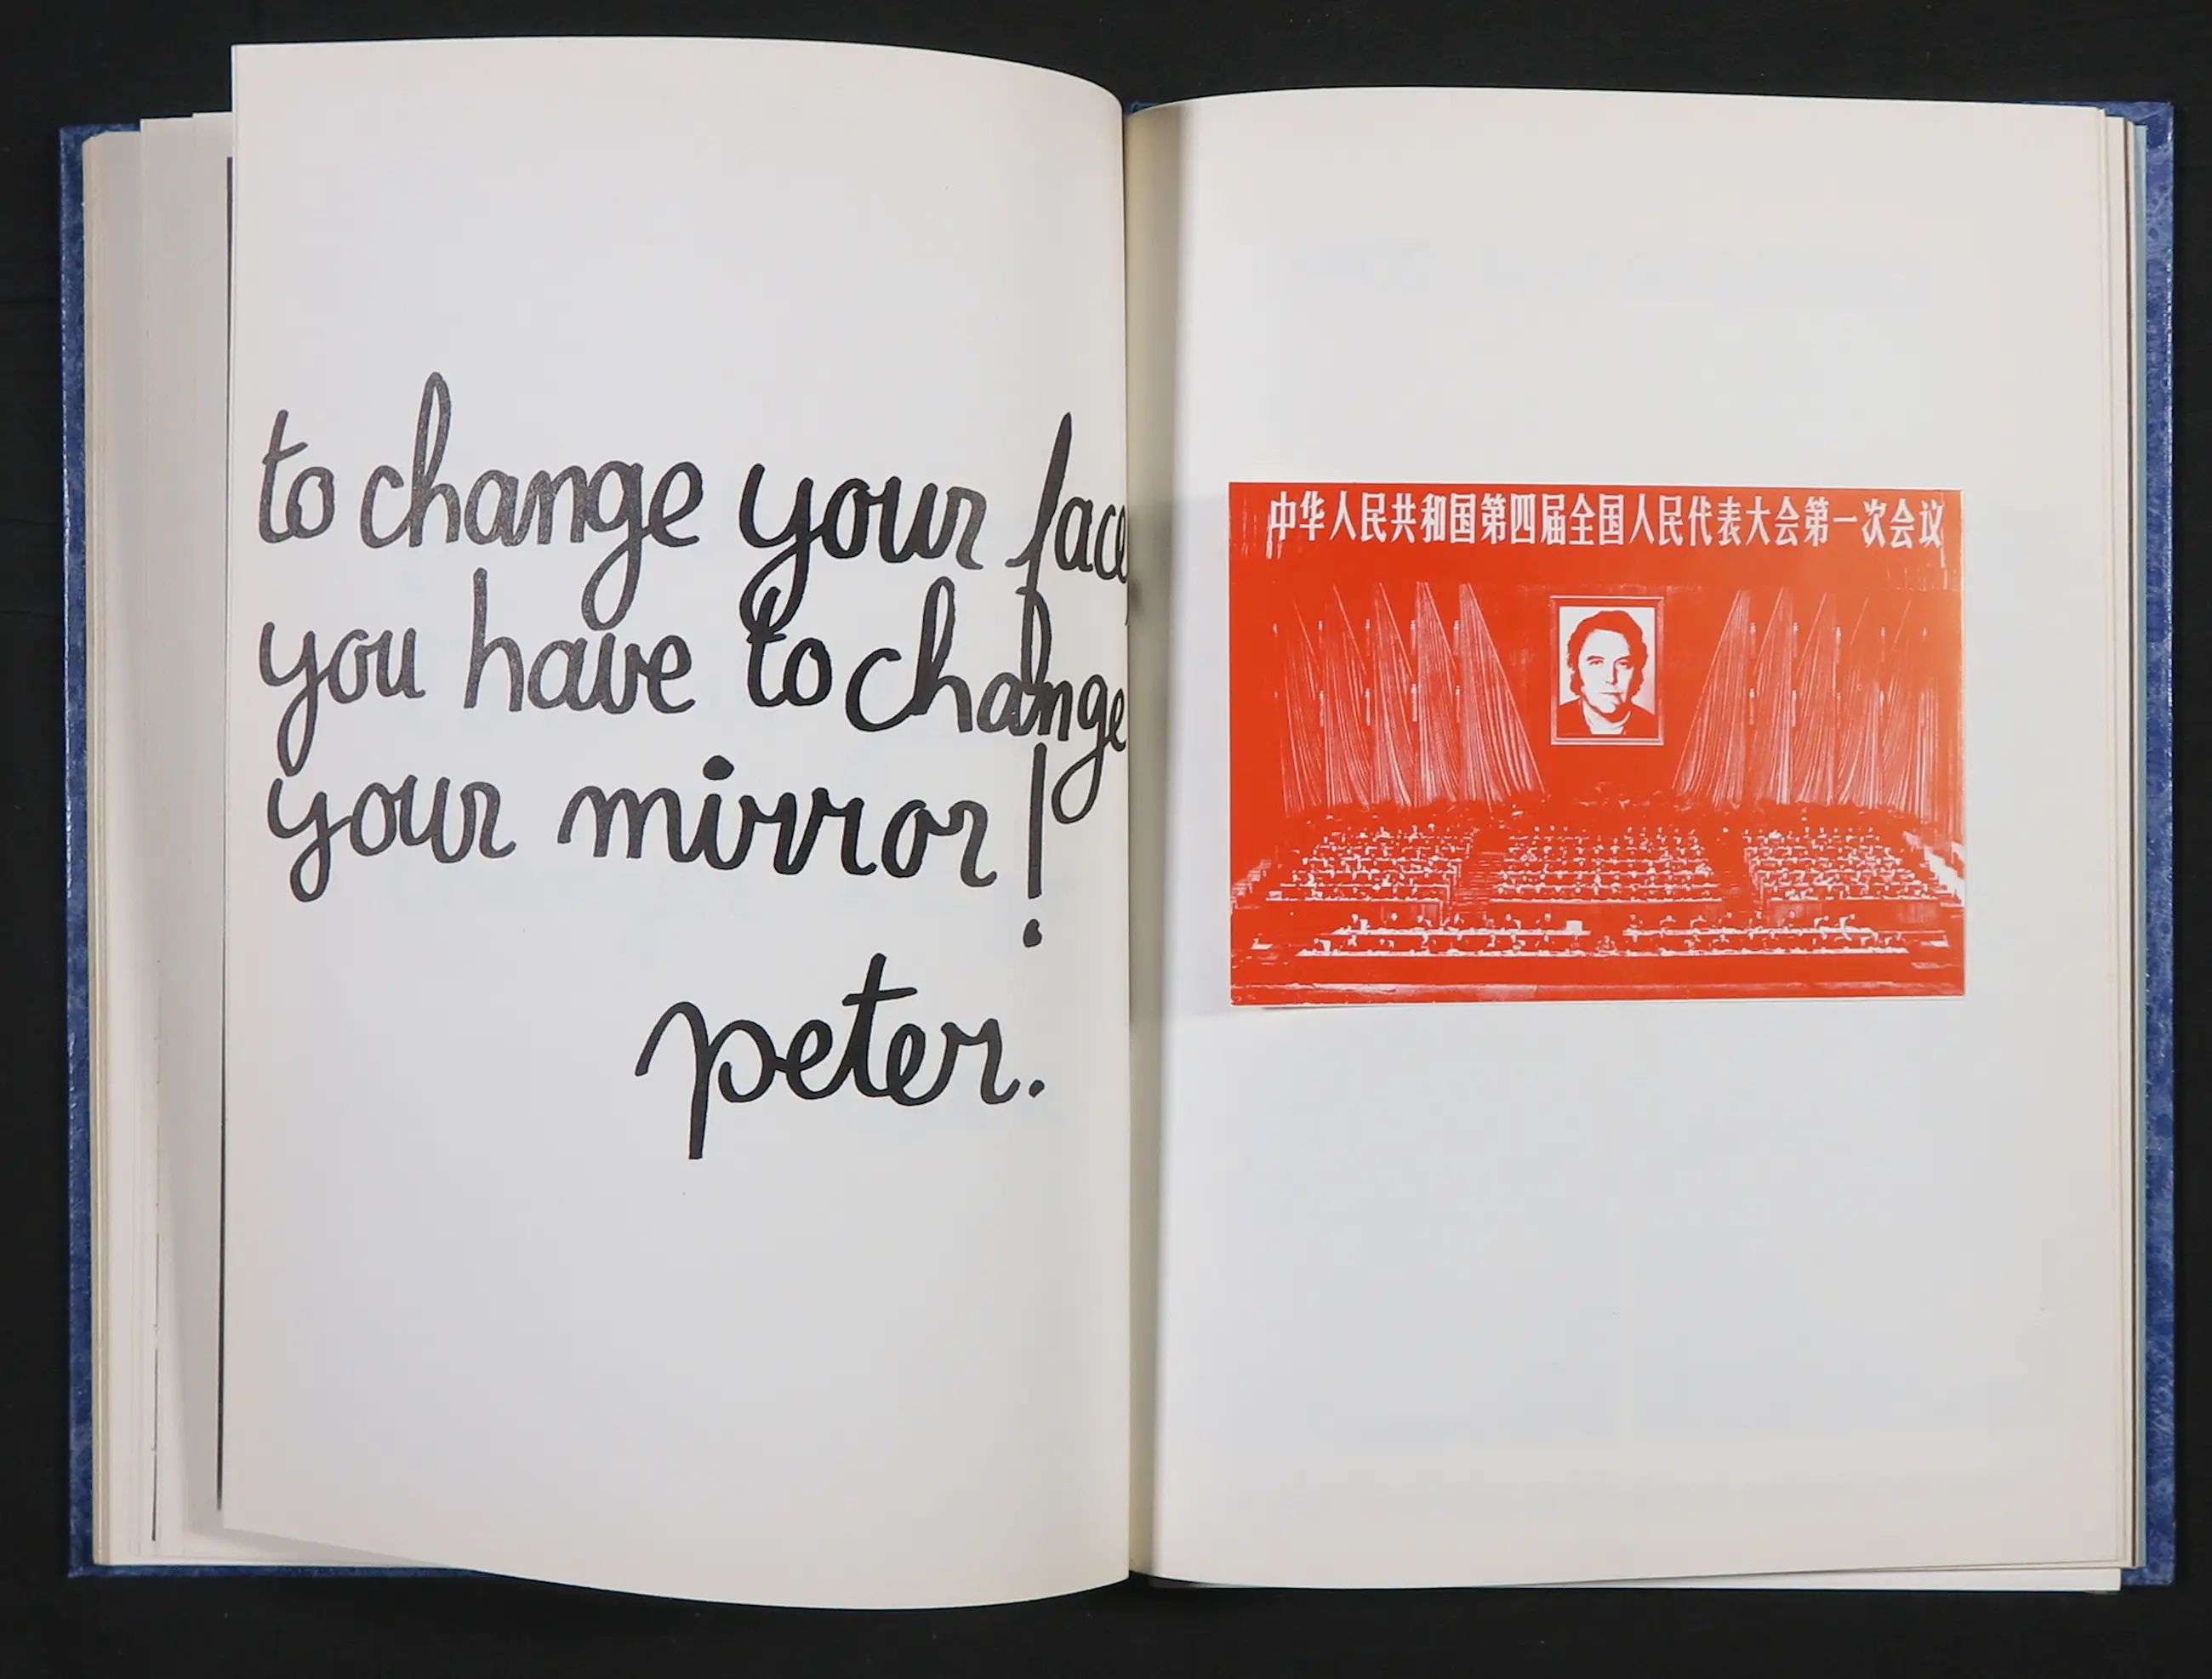 to change your face,
you have to change
your mirror!
peter.
中华人民共和国第四届全国人民代表大会第一次会议